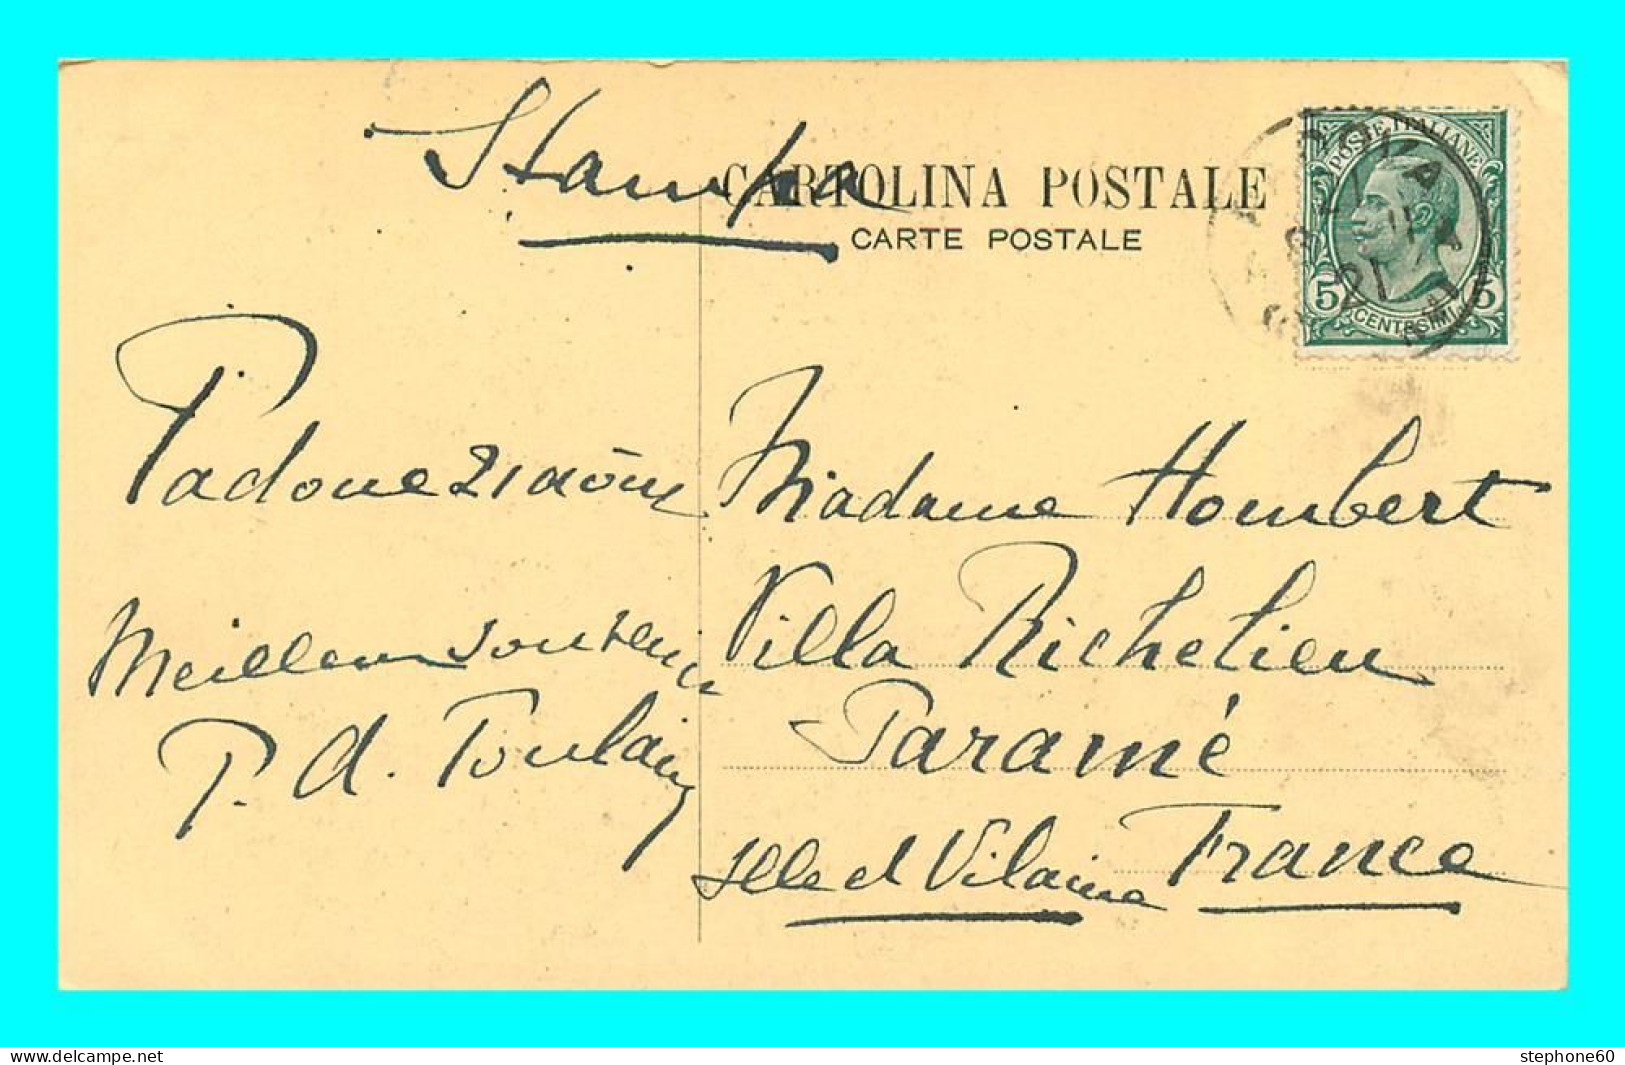 Stampa
CARTOLINA POSTALE
CARTE POSTALE
POSTE ITALIANE
5 CENTESIMI 5
Padoue 21 août
Meilleur souvenir
P. d. Toulain
Madame Hombert
Villa Richelieu
Paramé
Ille et Vilaine France
delcampe.net
stephone60